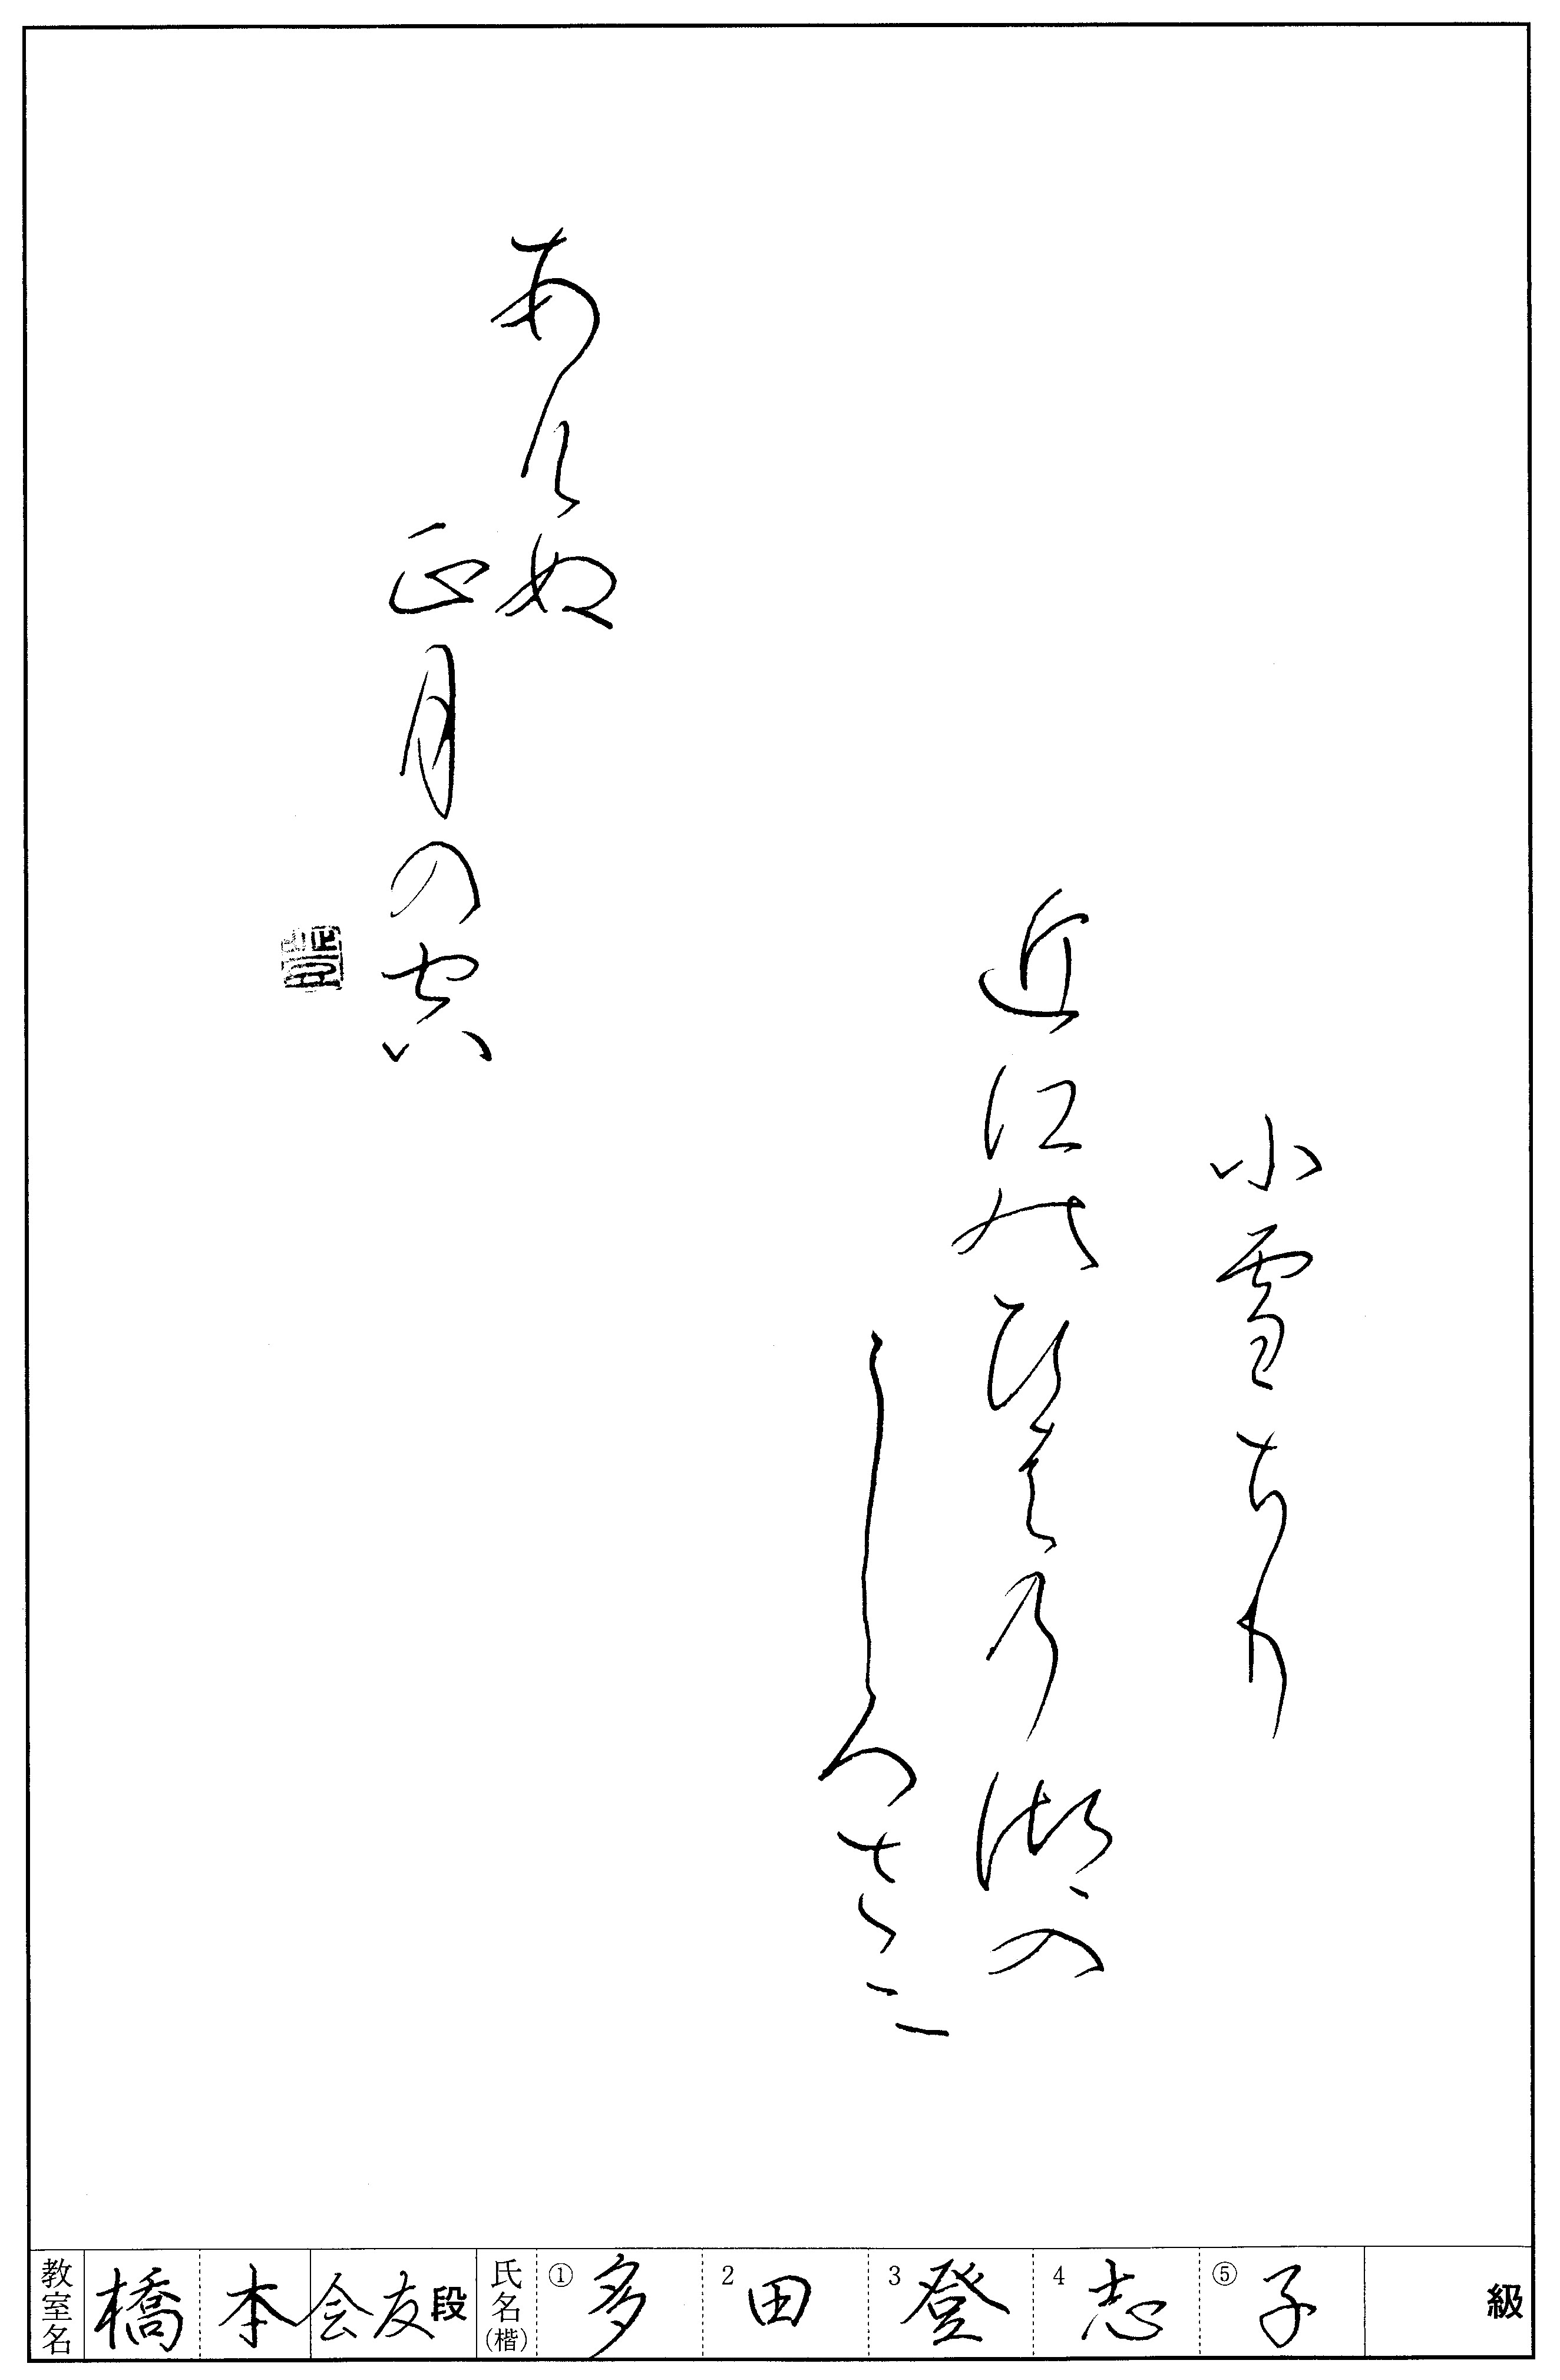 小雪ちり
近江のひえの湖の
あけぬ
正月の空
教室名 橋本 会友段 氏名(楷) ①多 2田 3登 4志 ⑤子 級